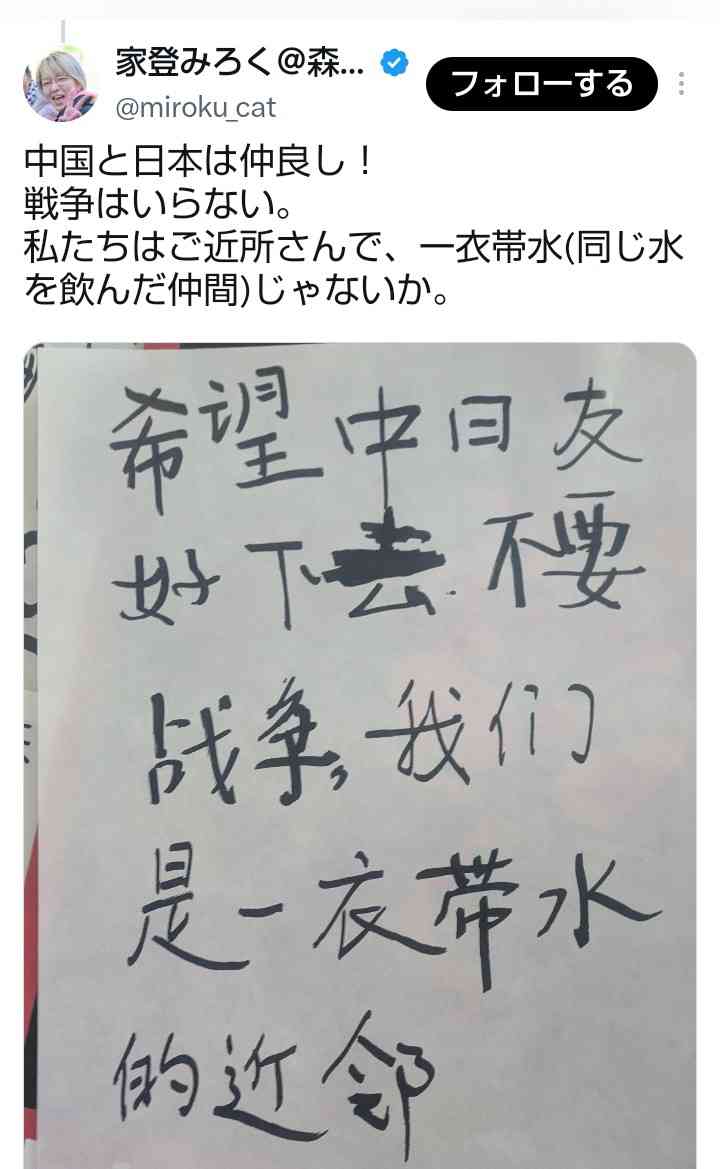 家登みろく@森...
@miroku_cat
フォローする
中国と日本は仲良し！
戦争はいらない。
私たちはご近所さんで、一衣帯水(同じ水
を飲んだ仲間)じゃないか。
希望中日友
好下去 不要
战争，我们
是一衣带水
的近邻